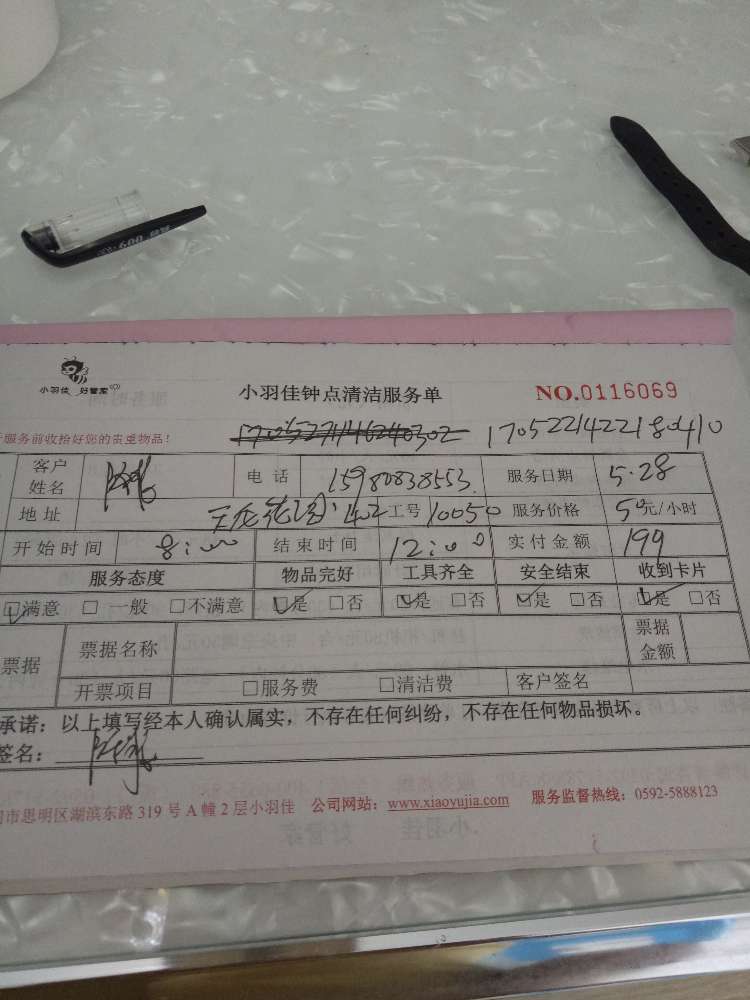 小羽佳 好管家
小羽佳钟点清洁服务单
NO.0116069
服务前收拾好您的贵重物品！
1705221422180410
客户姓名
电话 15980838553 服务日期 5.28
地址 402 工号 10050 服务价格 50元/小时
开始时间 8:00 结束时间 12:00 实付金额 199
服务态度 物品完好 工具齐全 安全结束 收到卡片
☑满意 □一般 □不满意 ☑是 □否 ☑是 □否 ☑是 □否 ☑是 □否
票据 票据名称 票据金额
开票项目 □服务费 □清洁费 客户签名
承诺：以上填写经本人确认属实，不存在任何纠纷，不存在任何物品损坏。
签名：
市思明区湖滨东路 319 号 A 幢 2 层小羽佳 公司网站：www.xiaoyujia.com 服务监督热线：0592-5888123